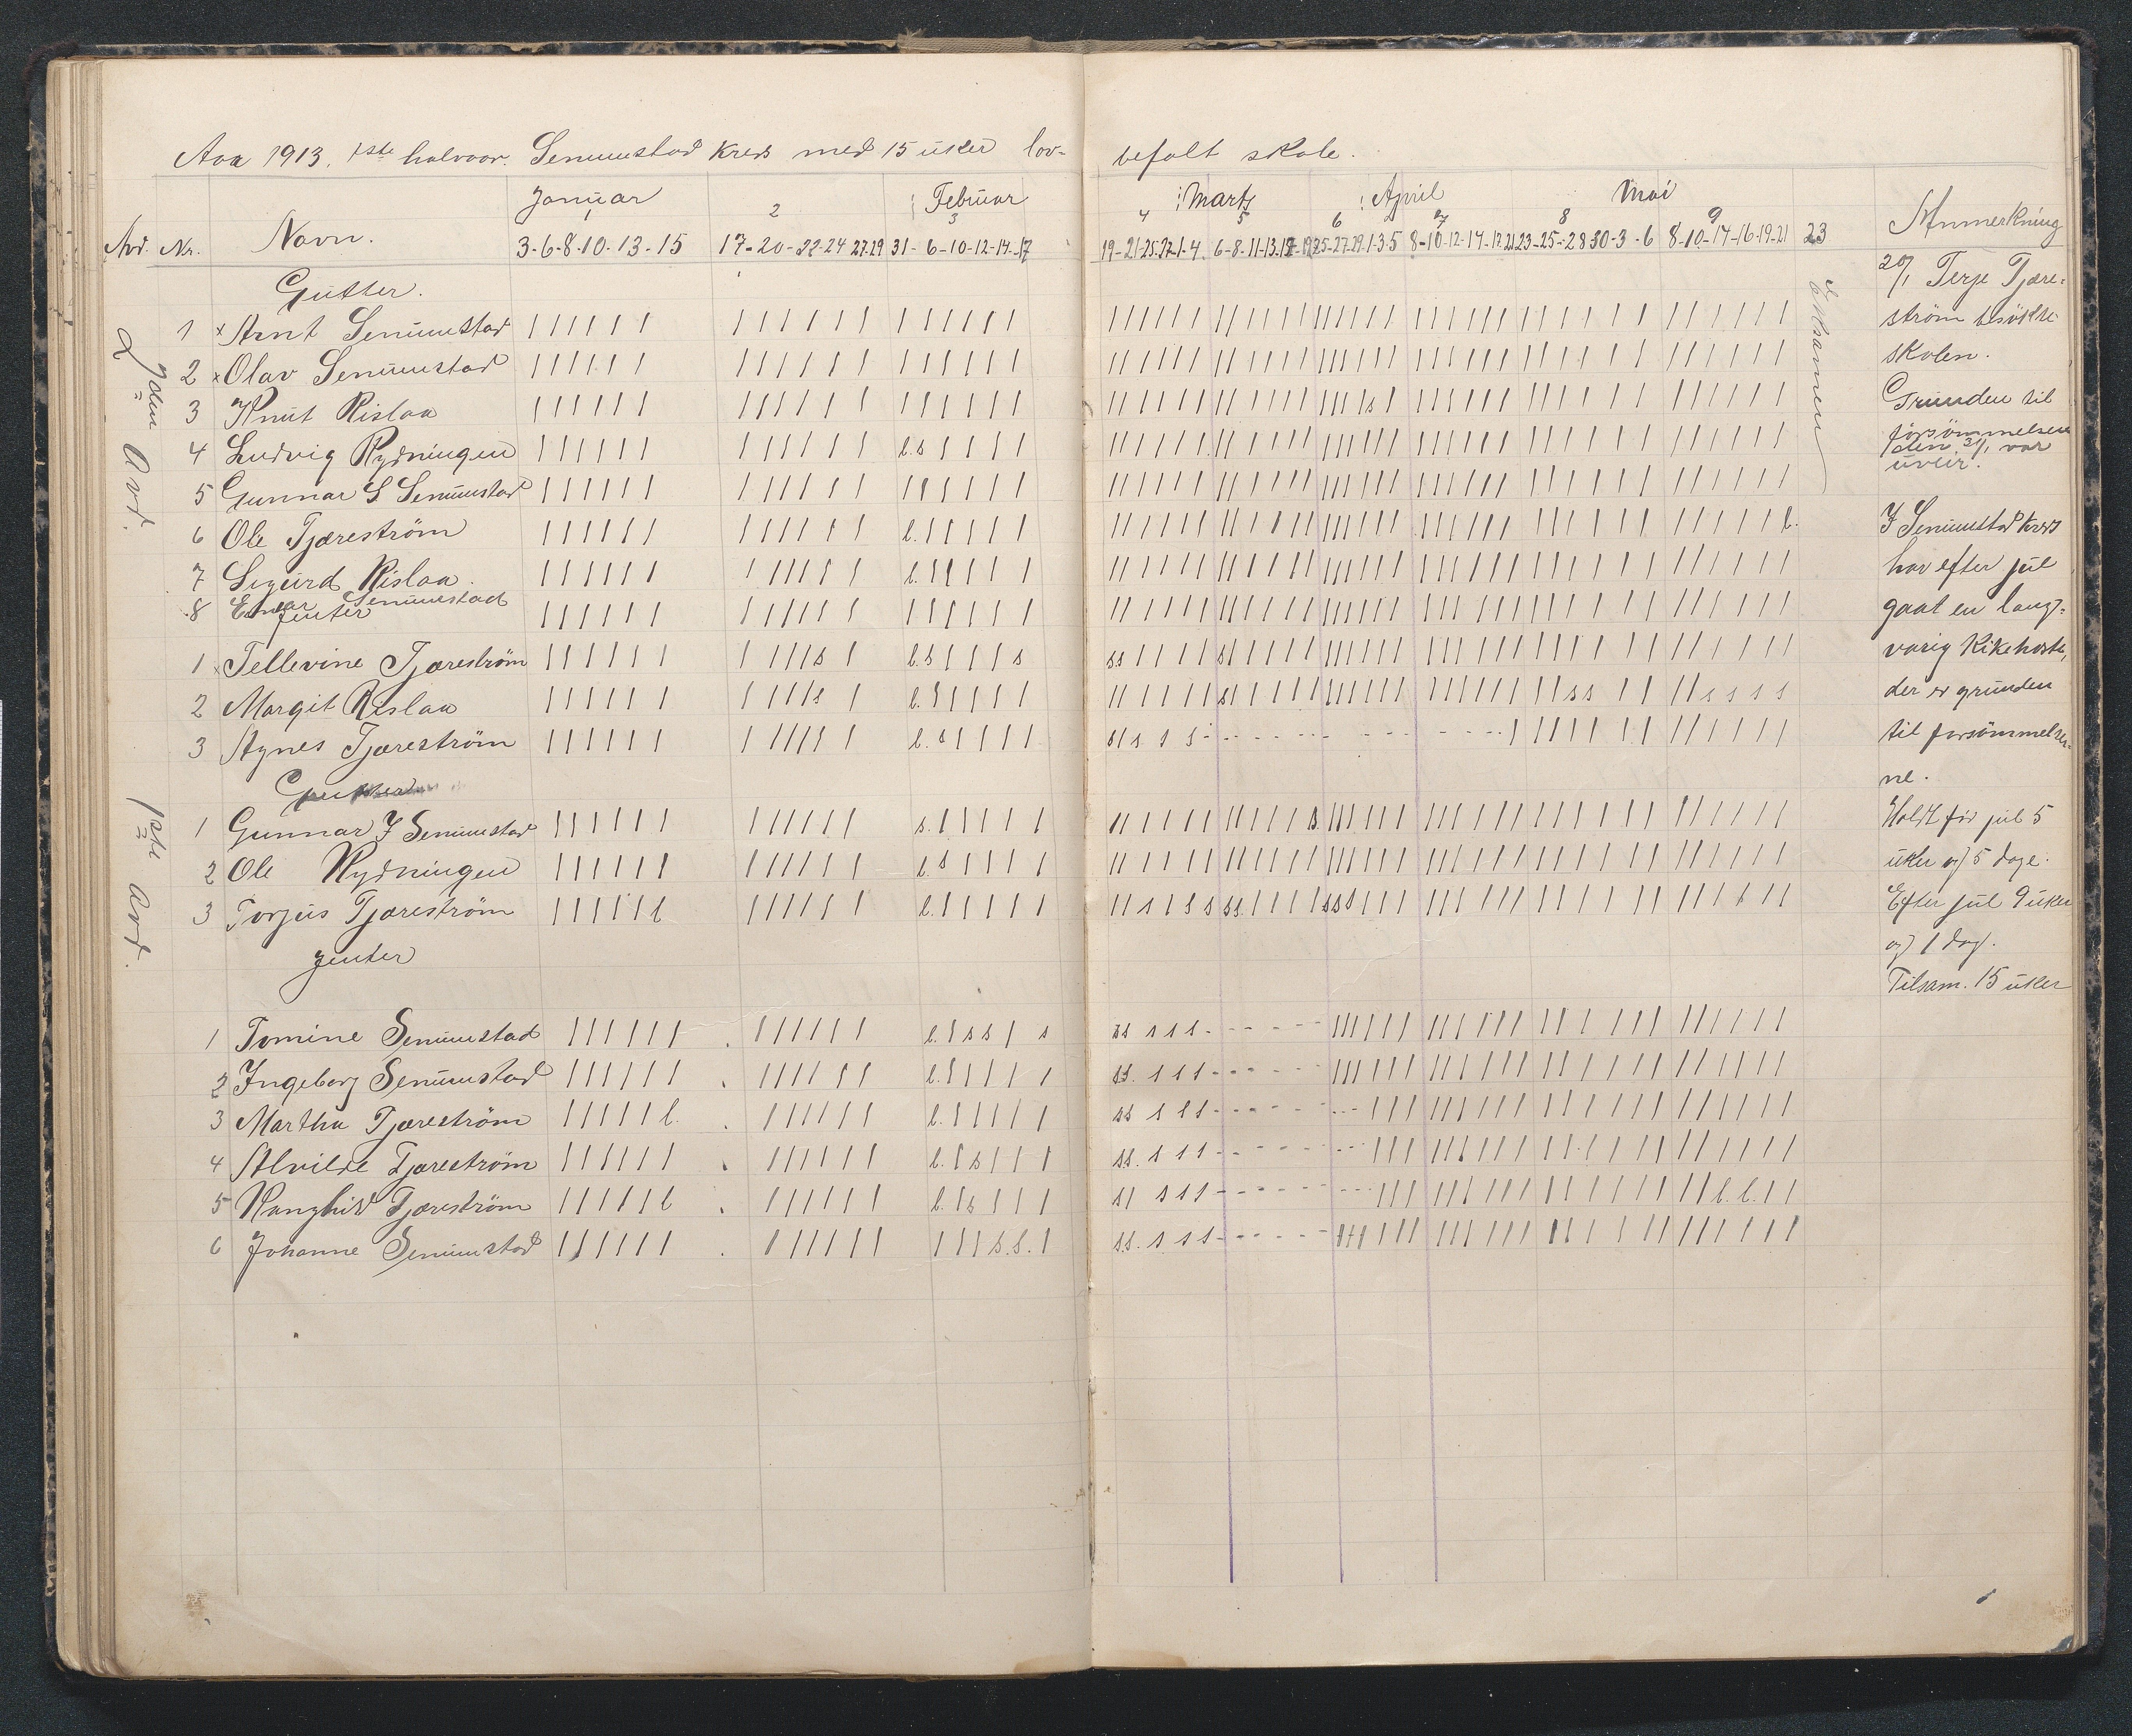 Aaa 1913. 1ste halvaar. Senumstad Kreds med 15 uker lov-
befalt skole.
Januar Februar Marts April Mai
1 2 3 4 5 6 7 8 9
Avd. Nr. Navn. Anmerkning
3-6-8-10-13-15 17-20-22-24 27-29 31-6-10-12-14-17
19-21-25-27-1-4 6-8-11-13- 25-27-29-1-3-5 8-10-12-14- 23-25-28 30-3-6 8-10-14-16-19-21 23
Eksamen
2den Avd.
Gutter.
1 x Arnt Senumstad
2 x Olav Senumstad
3 Knut Rislaa
4 Ludvig Rydningen
5 Gunnar S Senumstad
6 Ole Tjæreström
7 Sigurd Rislaa.
8 Einar Senumstad
Jenter
1 x Tellevine Tjæreström
2 Margit Rislaa
3 Agnes Tjæreström
1ste Avd.
Gutter
1 Gunnar J Senumstad
2 Ole Rydningen
3 Torjus Tjæreström
Jenter
1 Tomine Senumstad
2 Ingeborg Senumstad
3 Martha Tjæreström
4 Alvilde Tjæreström
5 Ranghild Tjæreström
6 Johanne Senumstad
20/1 Terje Tjære-
ström besökte
skolen.
Grunden til
forsömmelsen
den 31/1 var
uveir.
I Senumstad kreds
har efter jul
gaat en lang-
varig Kikehoste,
der er grunden
til forsömmelser-
ne.
Holdt för jul 5
uker og 5 dage.
Efter jul 9 uker
og 1 dag.
Tilsam. 15 uker